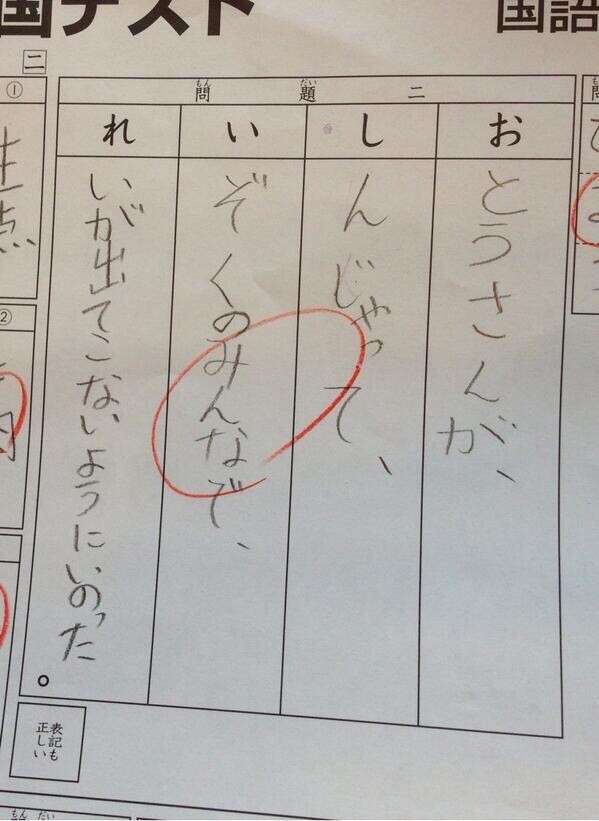 国テスト
国語
二
問題二
もんだい
おとうさんが、
しんじゃって、
いぞくのみんなで、
れいが出てこないようにいのった。
①
②
表記も
正しい
もんだい